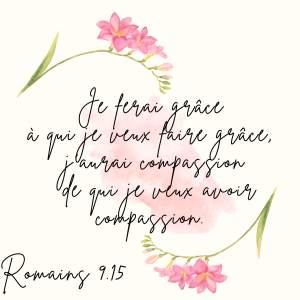 Je ferai grâce
à qui je veux faire grâce,
j'aurai compassion
de qui je veux avoir
compassion.
Romains 9.15